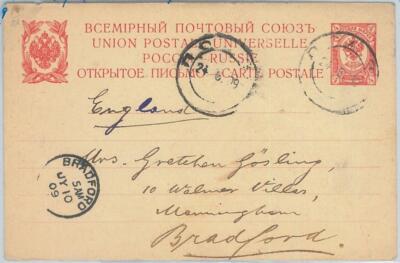 ВСЕМІРНЫЙ ПОЧТОВЫЙ СОЮЗЪ
UNION POSTALE UNIVERSELLE
РОССІЯ RUSSIE
ОТКРЫТОЕ ПИСЬМО CARTE POSTALE
24 6 09
England
Mrs. Gretchen Gosling,
10 Walmer Villas,
Manningham
Bradford.
BRADFORD
5 AM
JY 10
09